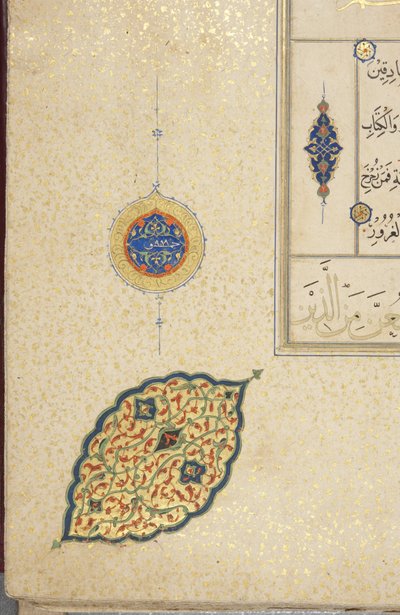 صَادِقِينَ
وَالْكِتَابِ
ةِ فَمَنْ زُحْزِحَ
الْغُرُورِ
مَعُنَّ مِنَ الَّذِينَ